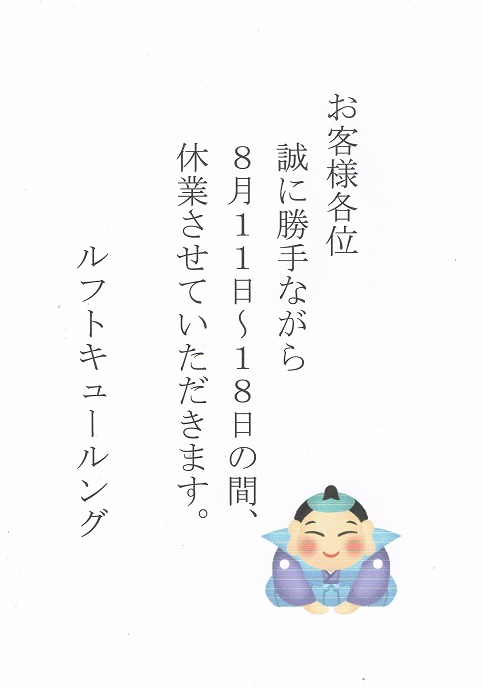 お客様各位
誠に勝手ながら
８月１１日～１８日の間、
休業させていただきます。
ルフトキュールング